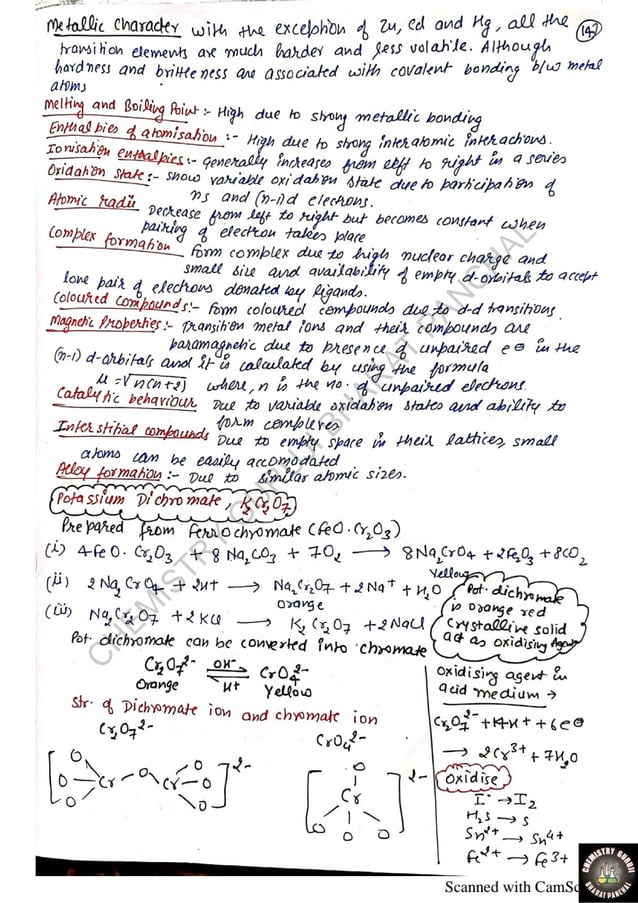 Metallic Character with the exception of Zn, Cd and Hg, all the
142
transition elements are much harder and less volatile. Although
hardness and britteness are associated with covalent bonding b/w metal
atoms
Melting and Boiling Point :- High due to strong metallic bonding
Enthalpies of atomisation :- High due to strong interatomic interactions.
Ionisation enthalpies :- generally increases from left to right in a series
Oxidation state :- show variable oxidation state due to participation of
ns and (n-1)d electrons.
Atomic radii Decrease from left to right but becomes constant when
pairing of electron takes place
Complex formation Form complex due to high nuclear charge and
small size and availability of empty d-orbitals to accept
lone pair of electrons donated by ligands.
Coloured Compounds :- Form coloured compounds due to d-d transitions
Magnetic Properties :- Transition metal ions and their compounds are
paramagnetic due to presence of unpaired e⊖ in the
(n-1) d-orbitals and it is calculated by using the formula
μ = √n(n+2) where, n is the no. of unpaired electrons
Catalytic behaviour Due to variable oxidation states and ability to
form complexes
Interstitial compounds Due to empty space in their lattices, small
atoms can be easily accomodated
Alloy formation :- Due to similar atomic sizes.
Potassium Dichromate, K2Cr2O7
Prepared from Ferrochromate (FeO.Cr2O3)
(i) 4FeO.Cr2O3 + 8Na2CO3 + 7O2 → 8Na2CrO4 + 2Fe2O3 + 8CO2
Yellow
(ii) 2Na2CrO4 + 2H+ → Na2Cr2O7 + 2Na+ + H2O
Orange
(iii) Na2Cr2O7 + 2KCl → K2Cr2O7 + 2NaCl
Pot. dichromate
is orange red
crystalline solid
act as oxidising Agent
Pot. dichromate can be converted into chromate
Cr2O7 2- OH- CrO4 2-
Orange H+ Yellow
Str. of Dichromate ion and chromate ion
Cr2O7 2- CrO4 2-
O O O 2-
O Cr O Cr O
O O
O 2-
Cr
O O O
Oxidising agent in
acid medium →
Cr2O7 2- + 14H+ + 6e⊖
→ 2Cr3+ + 7H2O
Oxidise
I- → I2
H2S → S
Sn2+ → Sn4+
Fe2+ → Fe3+
CHEMISTRY GURUJI BHARAT PANCHAL
CHEMISTRY GURUJI
BHARAT PANCHAL
Scanned with CamSc